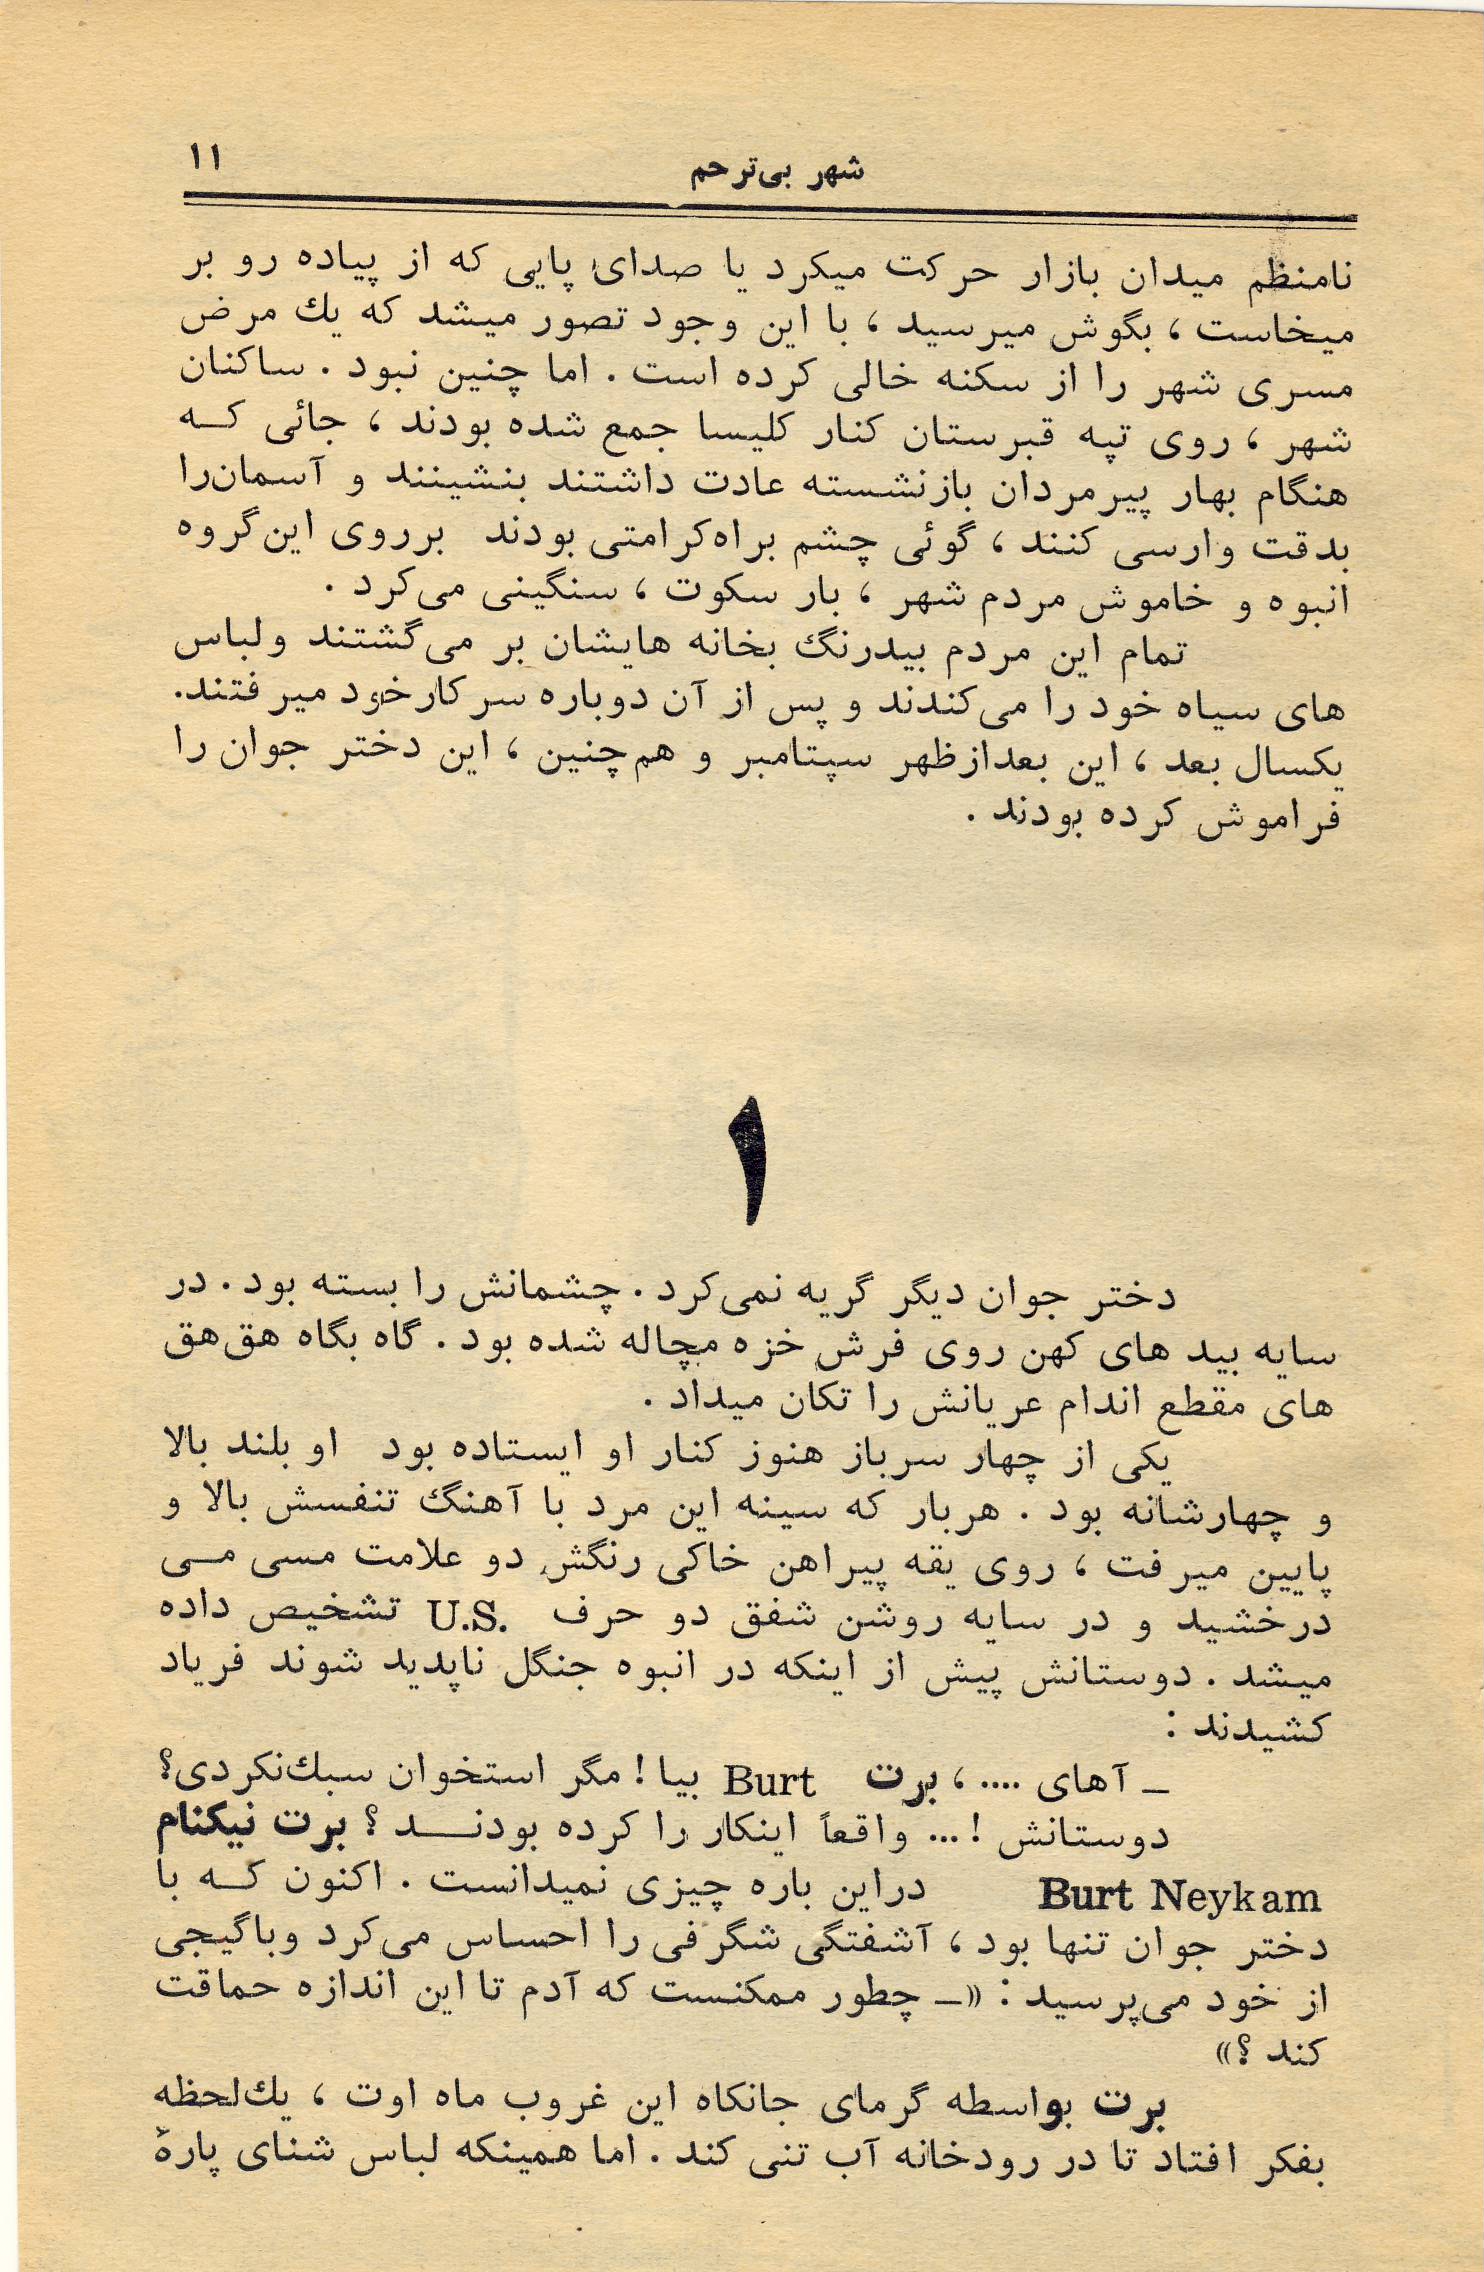 شهر بی‌ترحم ۱۱
نامنظم میدان بازار حرکت میکرد یا صدای پایی که از پیاده رو بر
میخاست ، بگوش میرسید ، با این وجود تصور میشد که یك مرض
مسری شهر را از سکنه خالی کرده است . اما چنین نبود . ساکنان
شهر ، روی تپه قبرستان کنار کلیسا جمع شده بودند ، جائی کـه
هنگام بهار پیرمردان بازنشسته عادت داشتند بنشینند و آسمان‌را
بدقت وارسی کنند ، گوئی چشم براه‌کرامتی بودند برروی این‌گروه
انبوه و خاموش مردم شهر ، بار سکوت ، سنگینی می‌کرد .
تمام این مردم بیدرنگ بخانه هایشان بر می‌گشتند ولباس
های سیاه خود را می‌کندند و پس از آن دوباره سرکارخود میرفتند.
یکسال بعد ، این بعدازظهر سپتامبر و هم‌چنین ، این دختر جوان را
فراموش کرده بودند .
۱
دختر جوان دیگر گریه نمی‌کرد . چشمانش را بسته بود . در
سایه بید های کهن روی فرش خزه مچاله شده بود . گاه بگاه هق‌هق
های مقطع اندام عریانش را تکان میداد .
یکی از چهار سرباز هنوز کنار او ایستاده بود او بلند بالا
و چهارشانه بود . هربار که سینه این مرد با آهنگ تنفسش بالا و
پایین میرفت ، روی یقه پیراهن خاکی رنگش دو علامت مسی مـی
درخشید و در سایه روشن شفق دو حرف U.S. تشخیص داده
میشد . دوستانش پیش از اینکه در انبوه جنگل ناپدید شوند فریاد
کشیدند :
ـ آهای .... ، برت Burt بیا ! مگر استخوان سبك‌نکردی؟
دوستانش !... واقعاً اینکار را کرده بودنـد ؟ برت نیکنام
Burt Neykam دراین باره چیزی نمیدانست . اکنون کـه با
دختر جوان تنها بود ، آشفتگی شگرفی را احساس می‌کرد وباگیجی
از خود می‌پرسید : «ـ چطور ممکنست که آدم تا این اندازه حماقت
کند ؟»
برت بواسطه گرمای جانکاه این غروب ماه اوت ، یك‌لحظه
بفکر افتاد تا در رودخانه آب تنی کند . اما همینکه لباس شنای پارهٔ